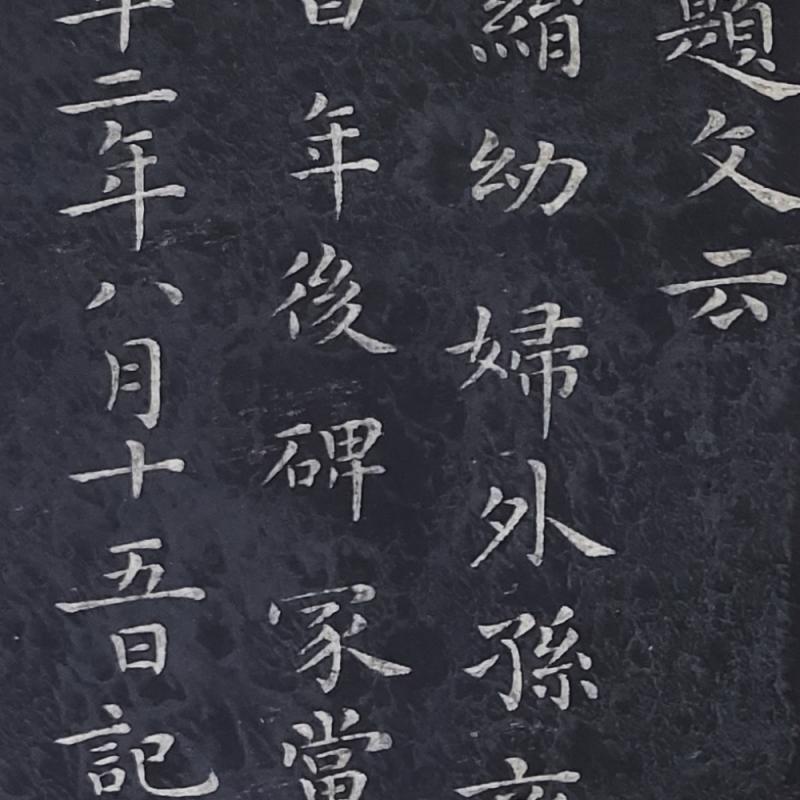 題文云
絹幼婦外孫
年後碑冢當
二年八月十五日記